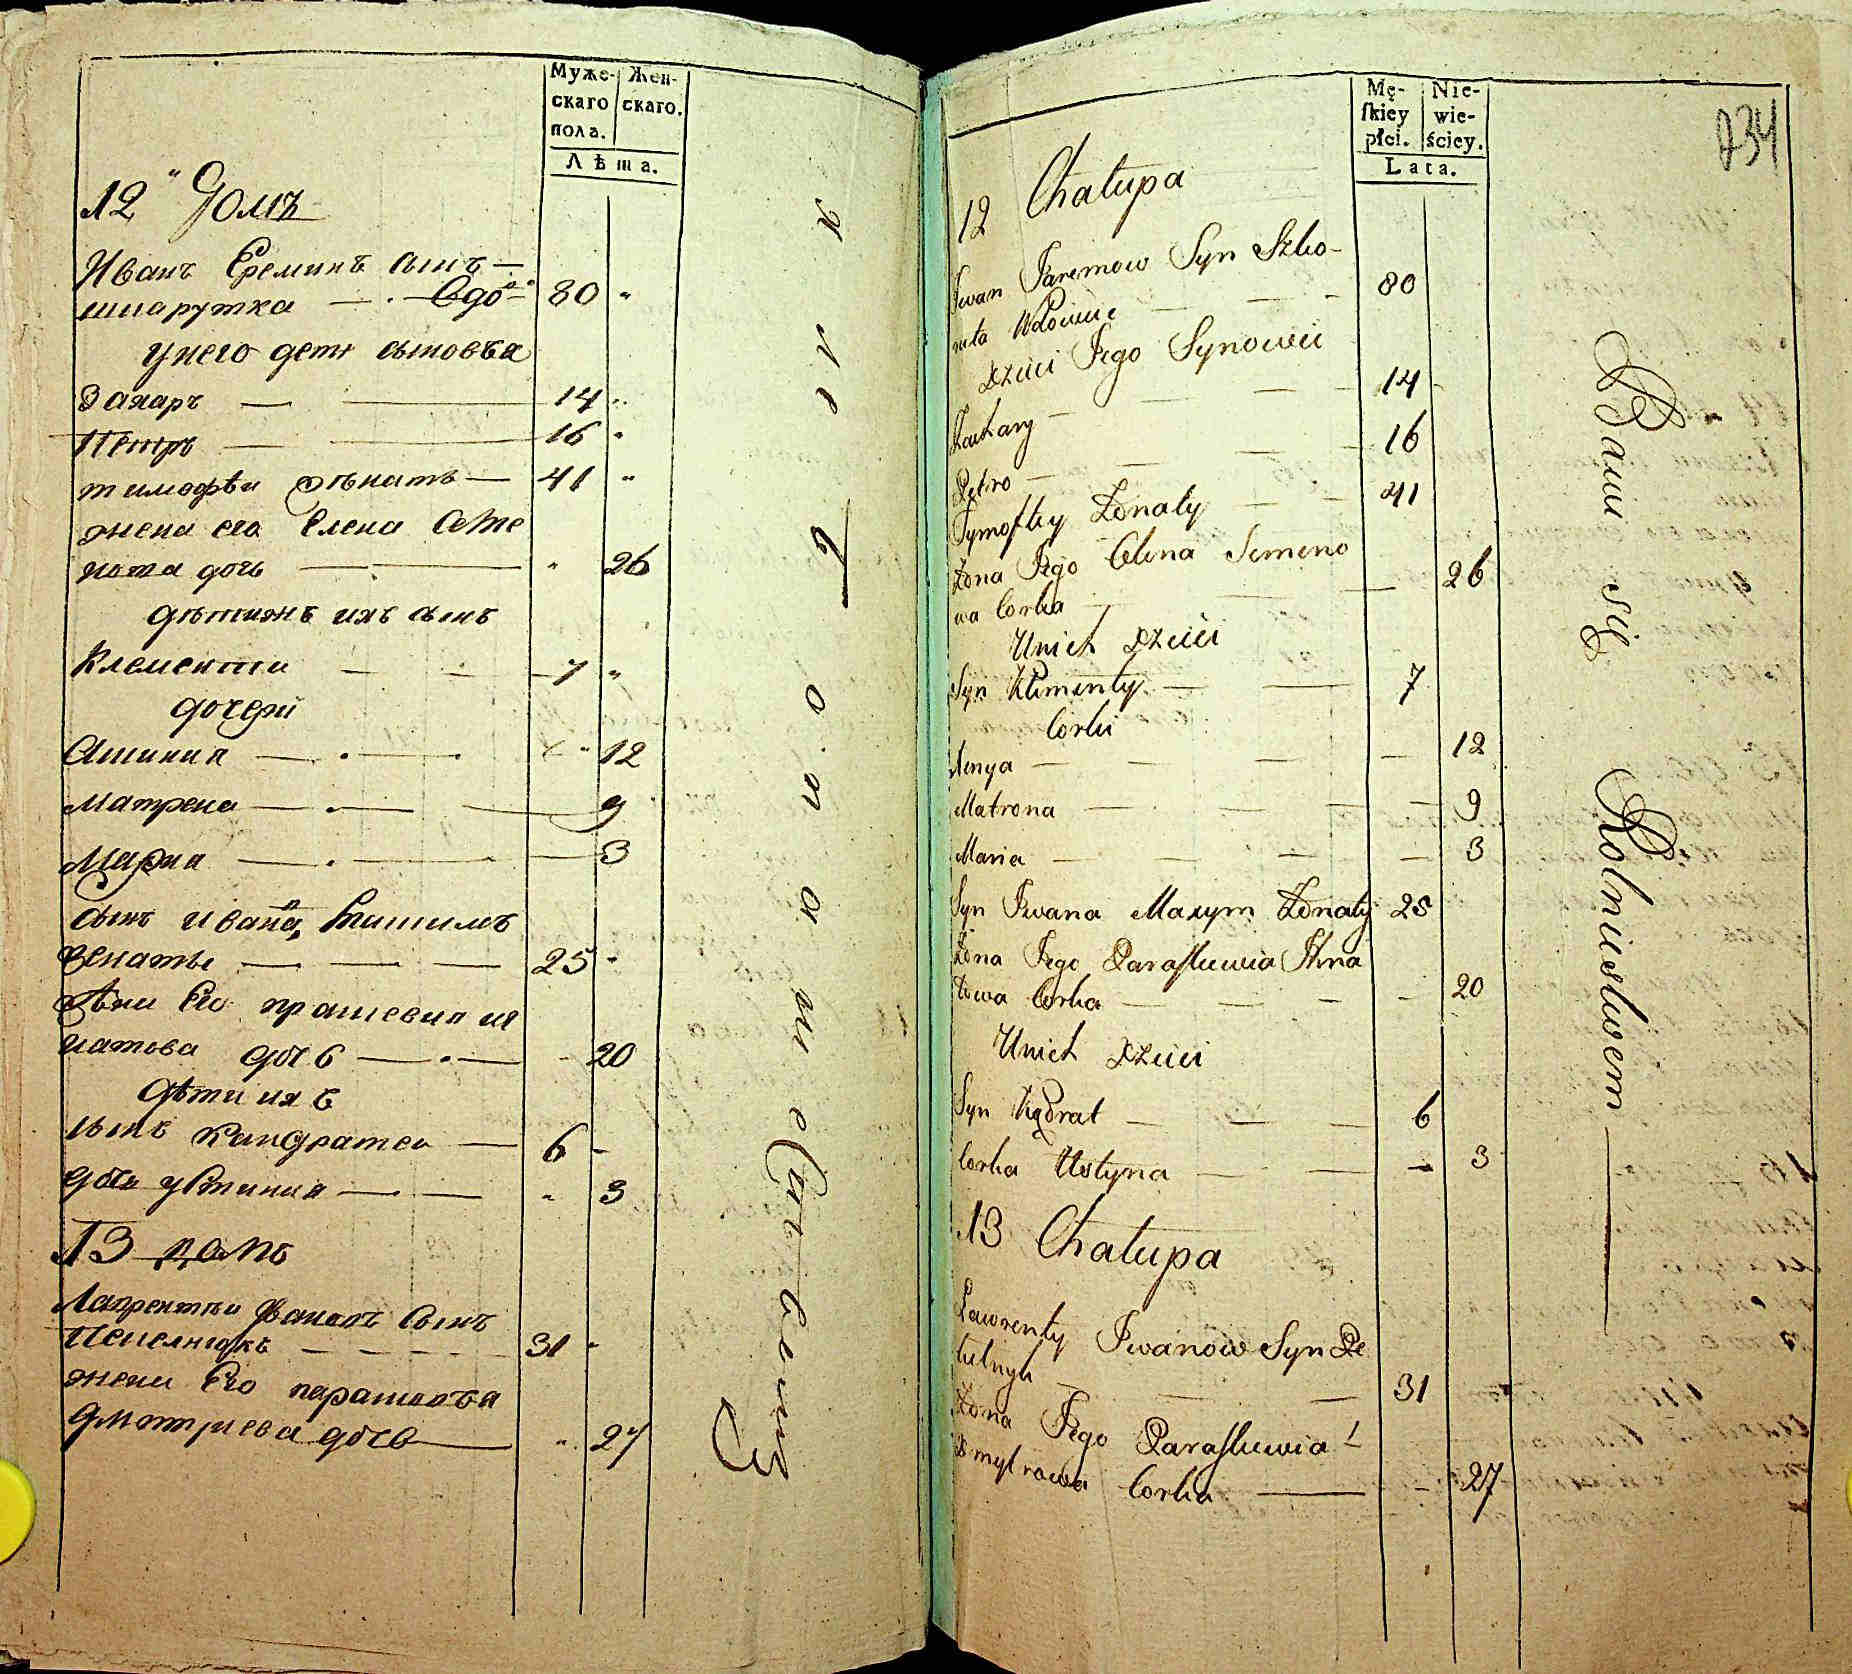 Муже-
скаго
пола.
Жен-
скаго.
Лѣта.
12 Домъ
Иванъ Ереминъ сынъ —
шкарутка — Вдовъ 80 „
у него дети сыновья
Захаръ — 14 „
Петръ — 16 „
тимофѣи — 41 „
жена его Елена Семе
нова дочь — „ 26
дѣтижъ ихъ сынъ
Клементи — 7 „
дочери
— „ 12
Матрена — 9
Мария — 3
сынъ ивана,
женаты — 25 „
Его
натова дочь — 20
дѣти ихъ
сынъ кандратеи — 6 -
дочь устиния — „ 3
13 домъ
Лаврентѣи Ивановъ сынъ
— 31 „
жена Его
дмитриева дочь — „ 27
Mę-
ſkiey
płci.
Nie-
wie-
ściey.
Lata.
234
12 Chałupa
Iwan Jaremow Syn Szko-
ruta Wdowiec — 80
Dzieci Jego Synowie
Zachary — 14
Petro — 16
Tymoftey Żonaty — 41
Żona Jego Elena Semeno
wa Corka — 26
Unich Dzieci
Syn Klimenty — 7
Corki
— 12
Matrona — 9
Maria — 3
Syn Iwana Maxym Żonaty 25
Żona Jego Paraſkiewia Ihna
towa Corka — 20
Unich Dzieci
Syn Kądrat — 6
Corka Ustyna — 3
13 Chałupa
Lawrenty Iwanow Syn Pe
— 31
Żona Jego Paraſkiewia
Dmytrowa Corka — 27
Bawi się Rolnictwem —